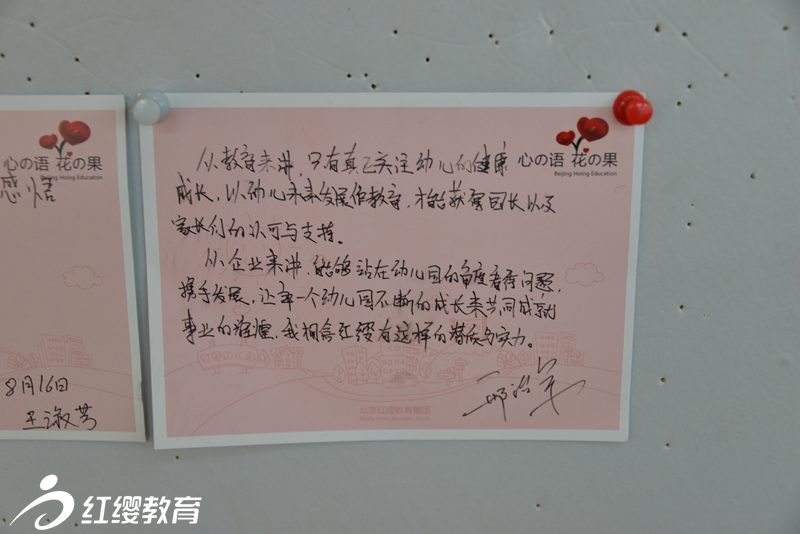 心の语 花の果
Beijing Hoing Education
感悟
8月16日
王淑芳
心の语 花の果
Beijing Hoing Education
从教育来讲，只有真正关注幼儿的健康
成长，以幼儿未来发展作教育，才能获得园长以及
家长们的认可与支持。
从企业来讲，能够站在幼儿园的角度看待问题，
携手发展，让每一个幼儿园不断的成长来共同成就
事业的辉煌，我相信红缨有这样的潜质与实力。
北京红缨教育集团
红缨教育